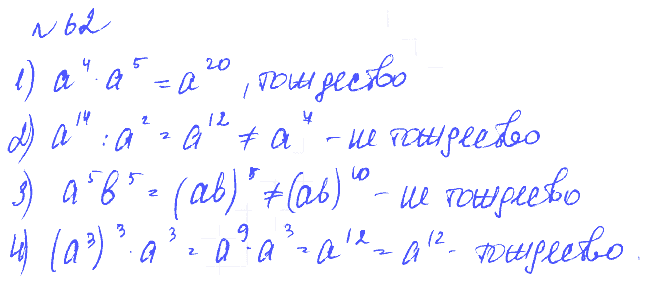 № 62
1) a⁴ · a⁵ = a²⁰, тождество
2) a¹⁴ : a² = a¹² ≠ a⁷ - не тождество
3) a⁵b⁵ = (ab)⁵ ≠ (ab)¹⁰ - не тождество
4) (a³)³ · a³ = a⁹ · a³ = a¹² = a¹² - тождество.